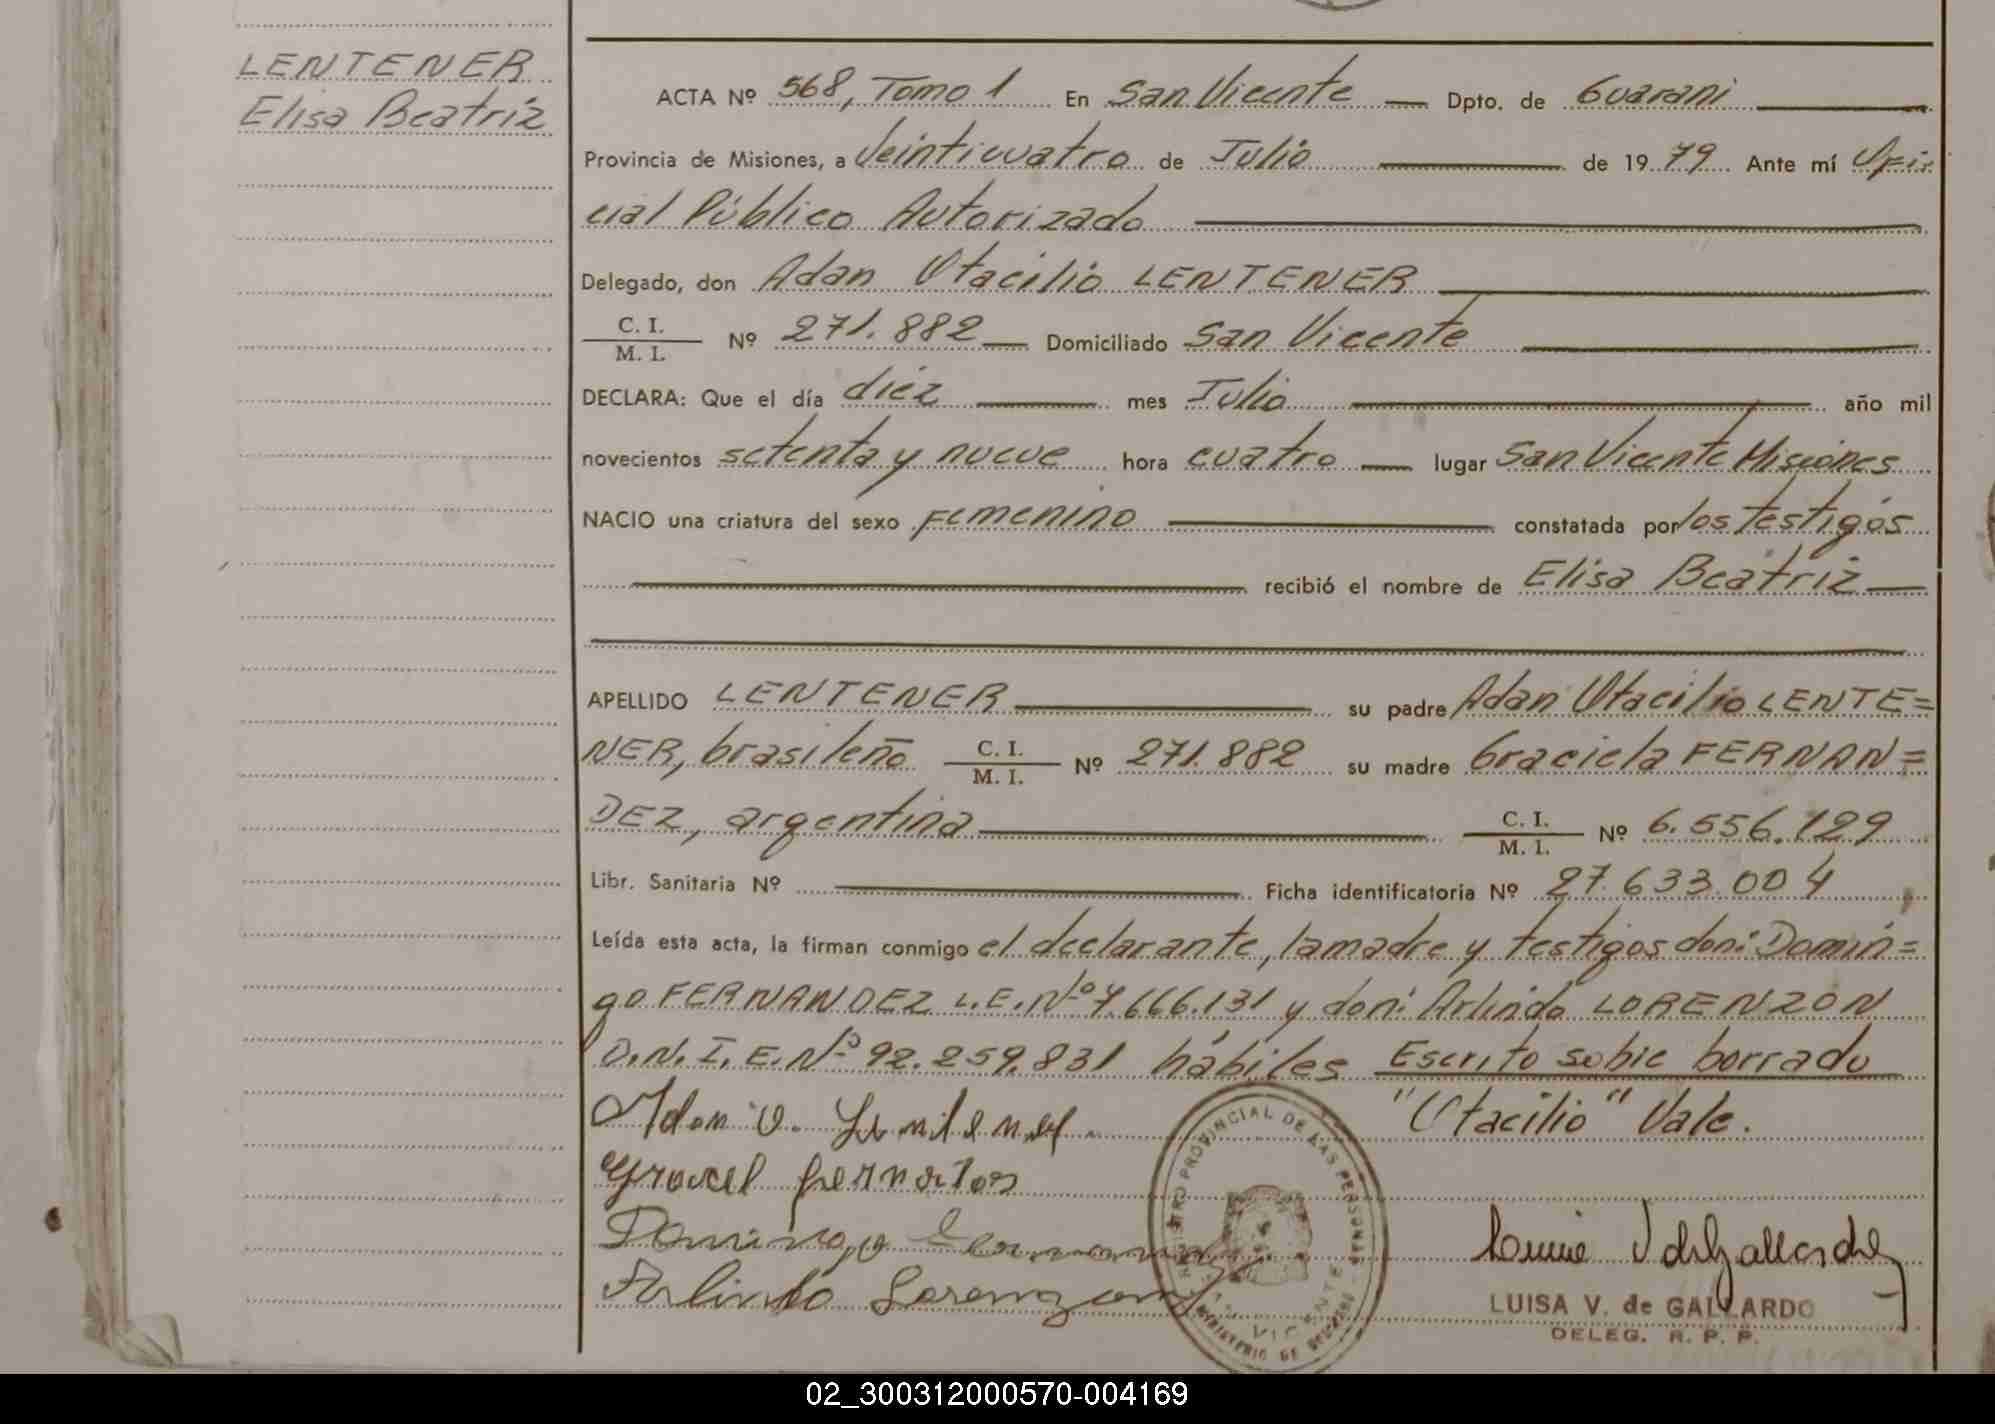 LENTENER
Elisa Beatriz
ACTA Nº 568, Tomo 1 En San Vicente Dpto. de Guarani
Provincia de Misiones, a Veinticuatro de Julio de 1979 Ante mí Ofi-
cial Público Autorizado
Delegado, don Adan Otacilio LENTENER
C. I.
M. I. Nº 271.882 Domiciliado San Vicente
DECLARA: Que el día diez mes Julio año mil
novecientos setenta y nueve hora cuatro lugar San Vicente Misiones
NACIO una criatura del sexo Femenino constatada por los testigos
recibió el nombre de Elisa Beatriz
APELLIDO LENTENER su padre Adan Otacilio LENTE=
NER, brasileño C. I. M. I. Nº 271.882 su madre Graciela FERNAN=
DEZ, argentina C. I. M. I. Nº 6.556.129
Libr. Sanitaria Nº Ficha identificatoria Nº 27.633.004
Leída esta acta, la firman conmigo el declarante, la madre y testigos don: Domin=
go FERNANDEZ L.E. Nº 7.666.131 y don: Arlindo LORENZON
D.N.I.E. Nº 92.259.831 hábiles Escrito sobre borrado
"Otacilio" Vale.
Adan O. Lentener
Domingo
Arlindo Lorenzon
REGISTRO PROVINCIAL DE LAS PERSONAS
SAN VICENTE
MINISTERIO DE GOBIERNO
LUISA V. de GALLARDO
DELEG. R. P. P.
02_300312000570-004169